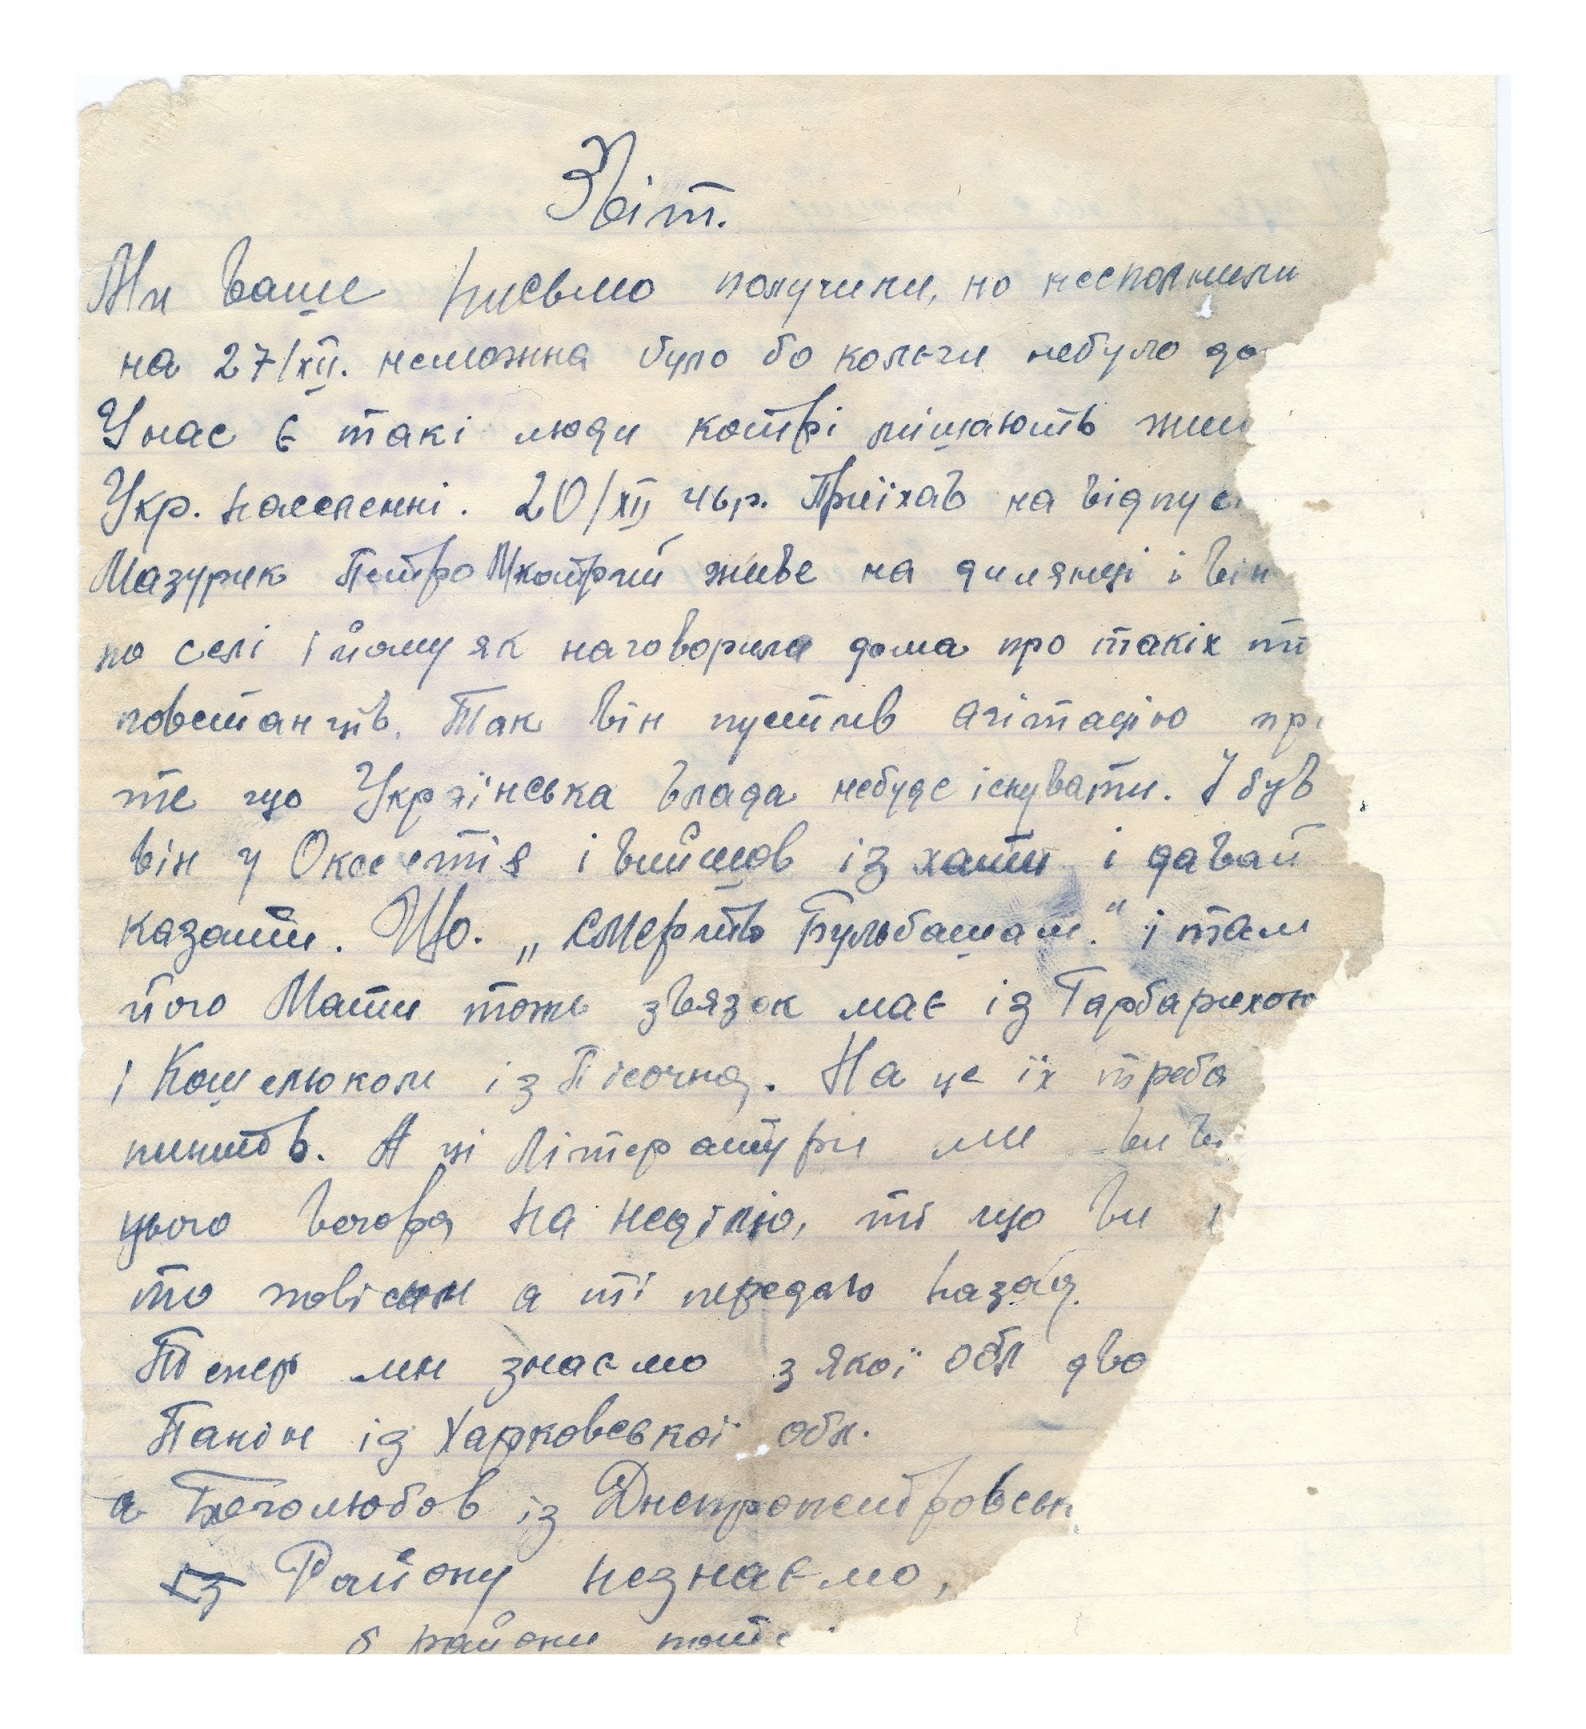 Звіт.
Ми ваше письмо получили, но несполнили
на 27/XII. неможна було бо колєги небуло до
Унас є такі люди котрі мішають
Укр. населенні. 20/XII ц.р. Приїхав на відпус
Мазурик Петро М котрий живе на дилянці і він
по селі і йому як наговорила дома про таких
повстанців. Так він пустив агітацію
те що Українська влада небуде існувати. І був
він у Оксентія і вийшов із хати і давай
казати. Що. „смерть Бульбашам." і там
його Мати тоже звязок має із Гарбарихою
і Кошелюком із Пісочна. На це їх треба
А ці Літератури ми
цього вечора на неділю, ті що ви
то а ті передаю назад.
Тепер ми знаємо з якої обл дво
Панін із Харковської обл.
а Боголюбов із Днепропетровськ
із Району незнаємо,
б райони